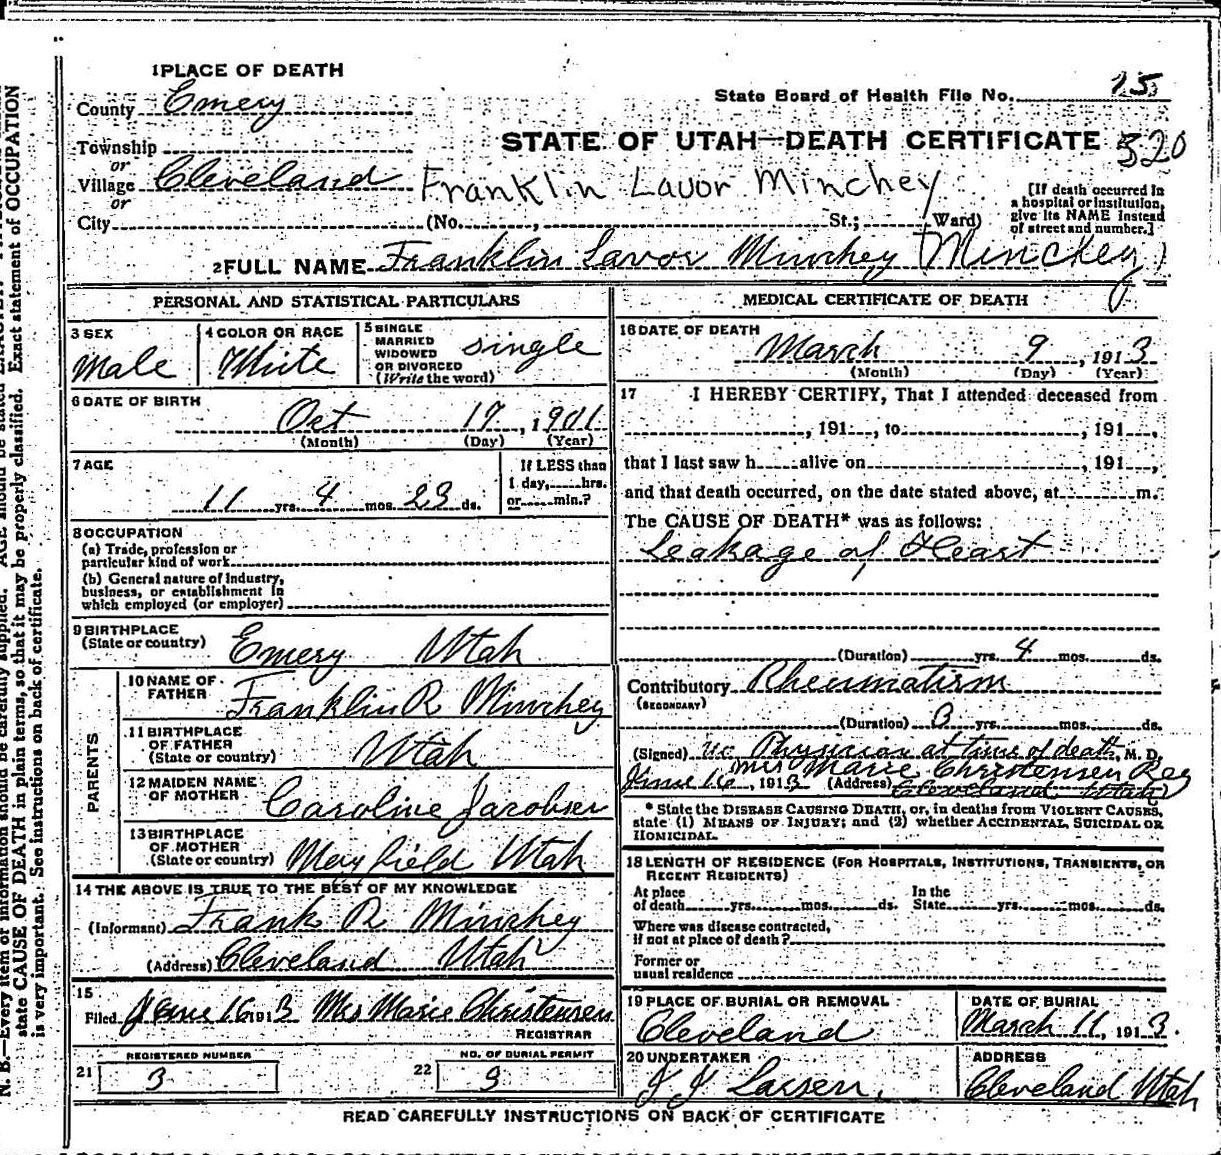 1 PLACE OF DEATH
County Emery
State Board of Health File No. 25
Township
STATE OF UTAH—DEATH CERTIFICATE 320
or
Village Cleveland Franklin Lavor Minchey
or
City (No. , St.; Ward)
[If death occurred in
a hospital or institution,
give its NAME instead
of street and number.]
2 FULL NAME Franklin Lavor Minchey (Minchey)
PERSONAL AND STATISTICAL PARTICULARS
3 SEX
Male
4 COLOR OR RACE
White
5 SINGLE
MARRIED
WIDOWED
OR DIVORCED
(Write the word)
single
6 DATE OF BIRTH
Oct 17, 1901
(Month) (Day) (Year)
7 AGE
11 yrs. 4 mos. 23 ds.
If LESS than
1 day, hrs.
or min.?
8 OCCUPATION
(a) Trade, profession or
particular kind of work
(b) General nature of industry,
business, or establishment in
which employed (or employer)
9 BIRTHPLACE
(State or country) Emery Utah
PARENTS
10 NAME OF
FATHER Franklin R Minchey
11 BIRTHPLACE
OF FATHER
(State or country) Utah
12 MAIDEN NAME
OF MOTHER Caroline Jacobsen
13 BIRTHPLACE
OF MOTHER
(State or country) Mayfield Utah
14 THE ABOVE IS TRUE TO THE BEST OF MY KNOWLEDGE
(Informant) Frank R Minchey
(Address) Cleveland Utah
15
Filed June 16 1913 Mrs Marie Christensen
REGISTRAR
REGISTERED NUMBER
21 3
NO. OF BURIAL PERMIT
22 9
MEDICAL CERTIFICATE OF DEATH
16 DATE OF DEATH
March 9, 1913
(Month) (Day) (Year)
17 I HEREBY CERTIFY, That I attended deceased from
, 191 , to , 191 ,
that I last saw h alive on , 191 ,
and that death occurred, on the date stated above, at m.
The CAUSE OF DEATH* was as follows:
Leakage of Heart
(Duration) yrs. 4 mos. ds.
Contributory Rheumatism
(SECONDARY)
(Duration) 3 yrs. mos. ds.
(Signed) no Physician at time of death, M. D.
Mrs Marie Christensen Reg
June 16, 1913 (Address) Cleveland Utah
* State the DISEASE CAUSING DEATH, or, in deaths from VIOLENT CAUSES,
state (1) MEANS OF INJURY; and (2) whether ACCIDENTAL, SUICIDAL OR
HOMICIDAL.
18 LENGTH OF RESIDENCE (FOR HOSPITALS, INSTITUTIONS, TRANSIENTS, OR
RECENT RESIDENTS)
At place
of death yrs. mos. ds.
In the
State yrs. mos. ds.
Where was disease contracted,
if not at place of death?
Former or
usual residence
19 PLACE OF BURIAL OR REMOVAL
Cleveland
DATE OF BURIAL
March 11, 1913.
20 UNDERTAKER
J J Larsen,
ADDRESS
Cleveland Utah
READ CAREFULLY INSTRUCTIONS ON BACK OF CERTIFICATE
N. B.—Every item of information should be carefully supplied. AGE should be stated
state CAUSE OF DEATH in plain terms, so that it may be properly classified. Exact statement of OCCUPATION
is very important. See instructions on back of certificate.